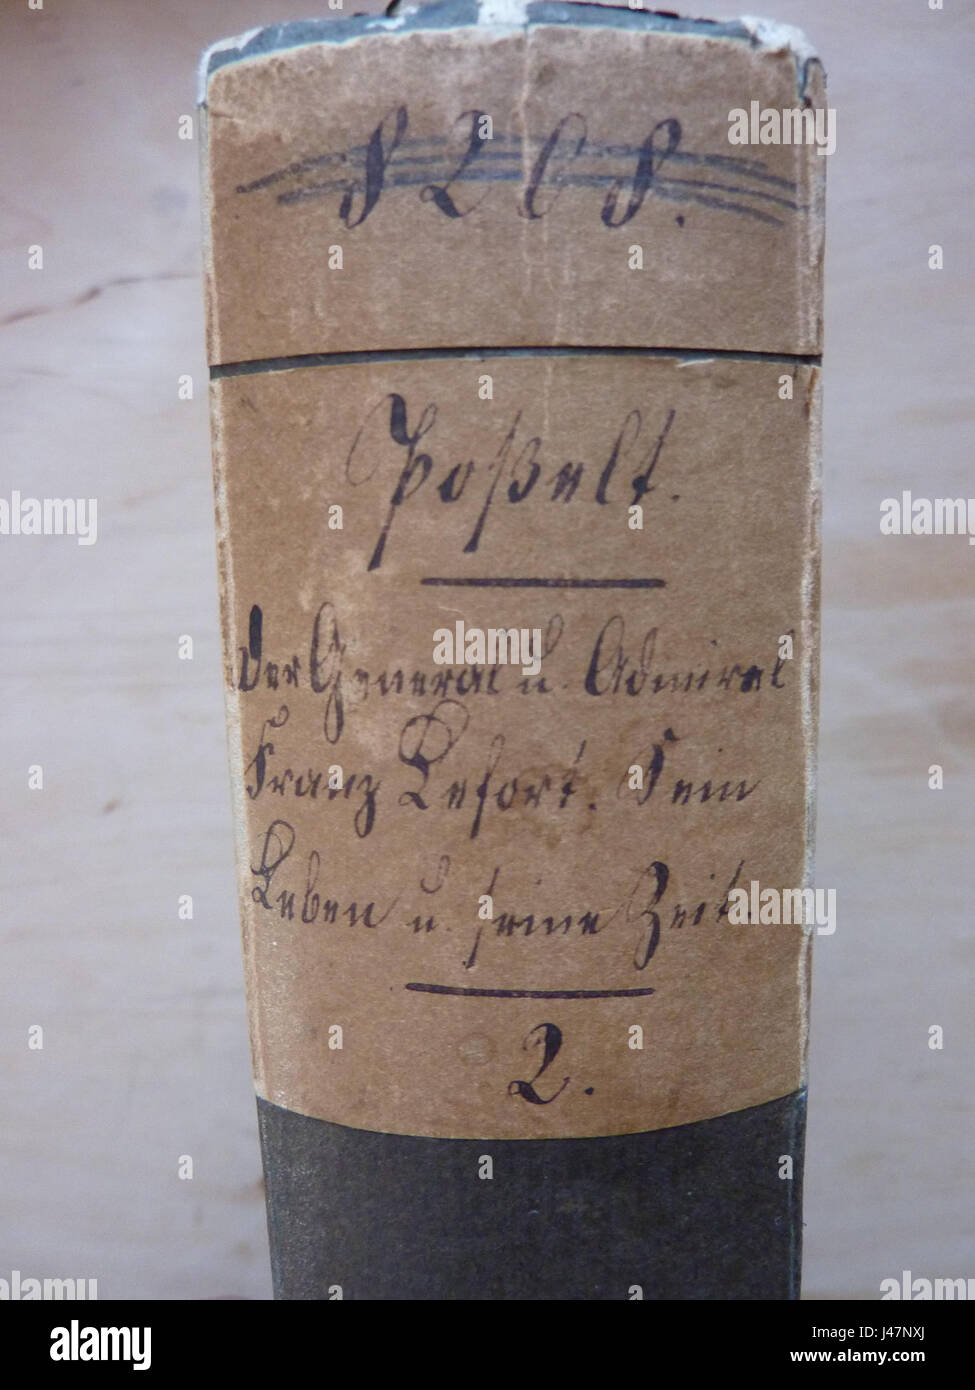 8208.
Poßelt.
Der General u. Admiral
Franz Lefort. Sein
Leben u. seine Zeit.
2.
alamy
alamy
alamy
alamy
alamy
alamy
alamy
alamy
Image ID: J47NXJ
www.alamy.com